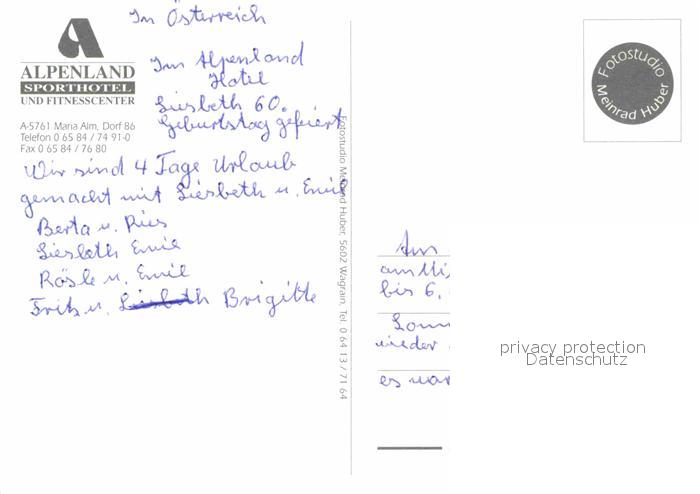 In Österreich
ALPENLAND
SPORTHOTEL
UND FITNESSCENTER
Im Alpenland
Hotel
Liesbeth 60.
Geburtstag gefeiert
A-5761 Maria Alm, Dorf 86
Telefon 0 65 84 / 74 91-0
Fax 0 65 84 / 76 80
Wir sind 4 Tage Urlaub
gemacht mit Liesbeth u. Emil
Berta u.
Liesbeth Emil
Rösle u. Emil
Fritz u. Brigitte
Fotostudio Meinrad Huber, 5602 Wagrain, Tel. 0 64 13 / 71 64
Fotostudio
Meinrad Huber
Am
bis 6.
wieder
es war
privacy protection
Datenschutz